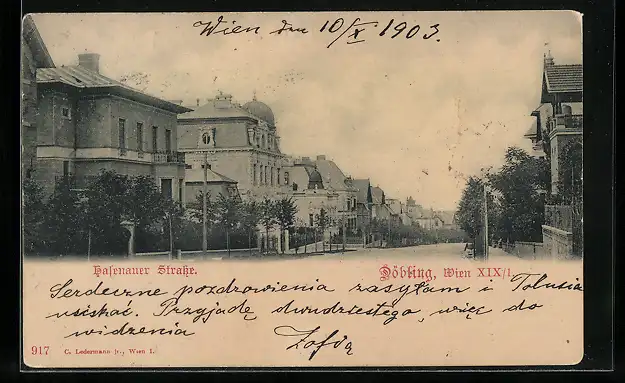 Wien den 10/X 1903.
Hasenauer Straße.
Döbling, Wien XIX/1.
Serdeczne pozdrowienia zasyłam i Tolusia
uściskać. Przyjadę dwudziestego, więc do
widzenia
Zofią
917 C. Ledermann jr., Wien I.